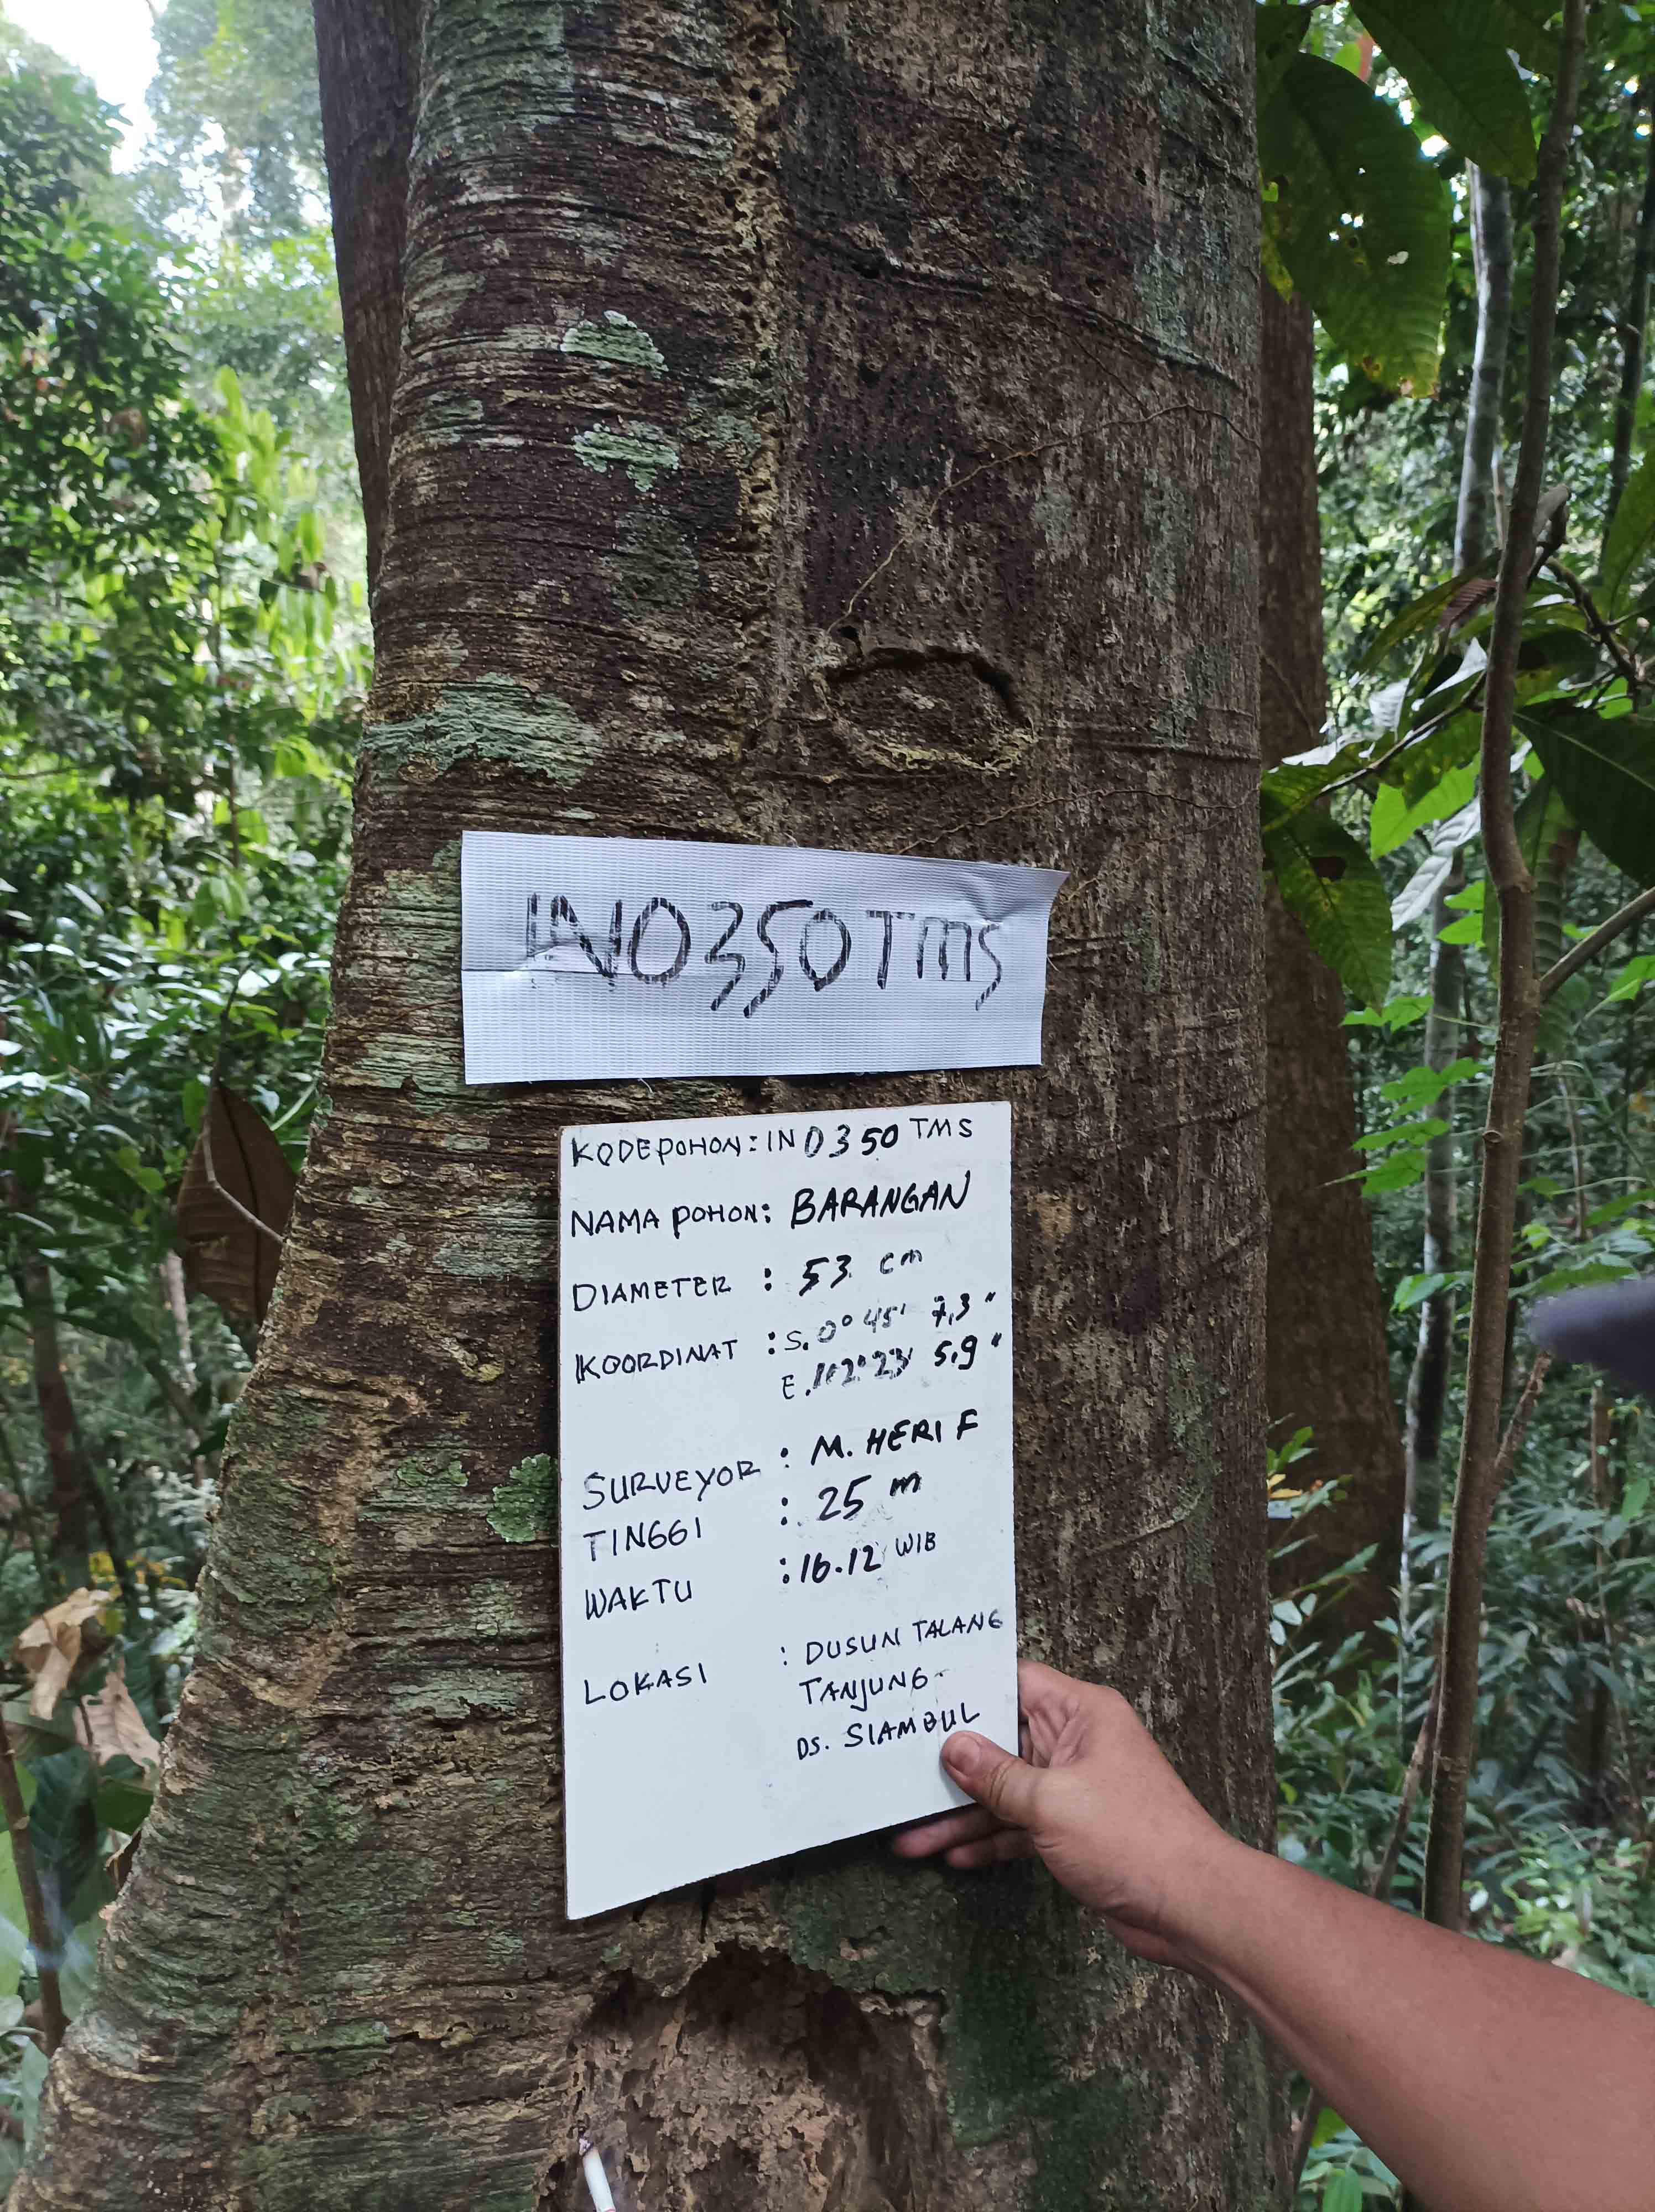 INO350TMS
KODE POHON : INO350 TMS
NAMA POHON : BARANGAN
DIAMETER : 53 cm
KOORDINAT : S. 0° 45' 7,3"
E. 102° 23' 5.9"
SURVEYOR : M. HERI F
TINGGI : 25 m
WAKTU : 16.12 WIB
LOKASI : DUSUN TALANG
TANJUNG-
DS. SIAMBUL